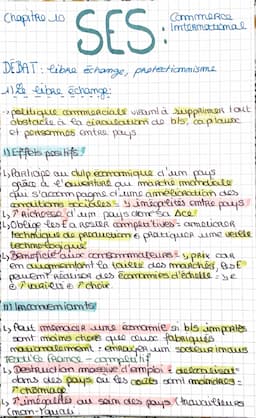 Chapitre 10
SES :
Commerce
International
DEBAT : libre échange, protectionnisme
1) Le libre échange :
politique commerciale visant à supprimer tout
obstacle à la circulation de b/s, capitaux
et personnes entre pays
1) Effets positifs :
↳ Participe au dvlp économique d'un pays
grâce à l'ouverture au marché mondiale
qui s'accompagne d'une amélioration des
conditions sociales = ↘ inégalités entre pays
↳ ↗ Richesse d'un pays dans sa
↳ Oblige les E à rester compétitives = améliorer
technique de production et pratiquer une veille
technologique
↳ Bénéfice aux consommateurs : ↘ prix car
en augmentant la taille des marchés, les E
peuvent réaliser des économies d'échelle =
et ↗ variétés et ↗ choix
II) Inconvénients
↳ Peut menacer une économie si b/s importés
sont moins chers que ceux fabriqués
nationalement = enrayer un secteur
textile France - compétitif
↳ Destruction massive d'emploi =
dans des pays où les coûts sont moindres =
↗ chômage
↳ ↗ inégalités au sein des pays (travailleurs
non-qualifié